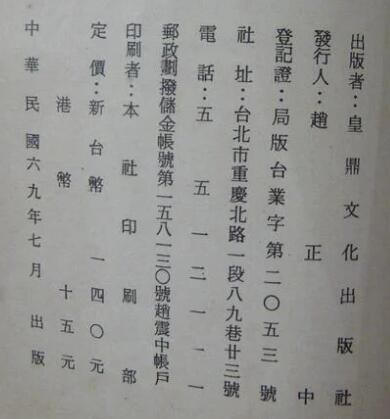 出版者：皇鼎文化出版社
發行人：趙正中
登記證：局版台業字第二〇五三號
社址：台北市重慶北路一段八九巷廿三號
電話：五五一二一一一
郵政劃撥儲金帳號第一五八一三〇號趙震中帳戶
印刷者：本社印刷部
定價：新台幣一四〇元
港幣十五元
中華民國六九年七月出版